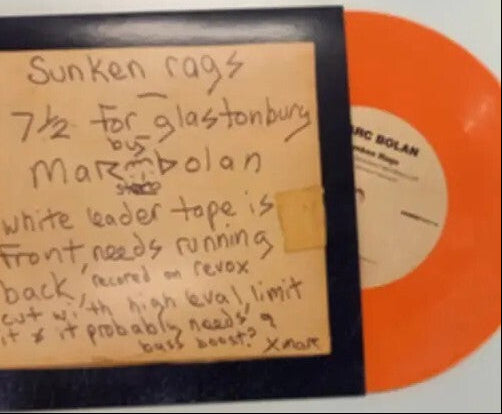 Sunken rags
7½ for glastonbury
by
Marc bolan
white leader tape is
front, needs running
back, recored on revox
cut with high leval, limit
it & it probably needs a
bass boost? X marc
ARC BOLAN
Rags